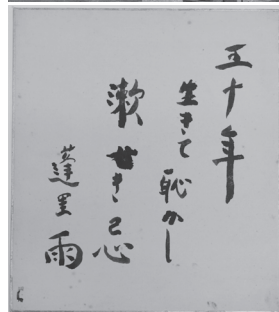 五十年
生きて恥かし
漱せき忌
蓬里雨